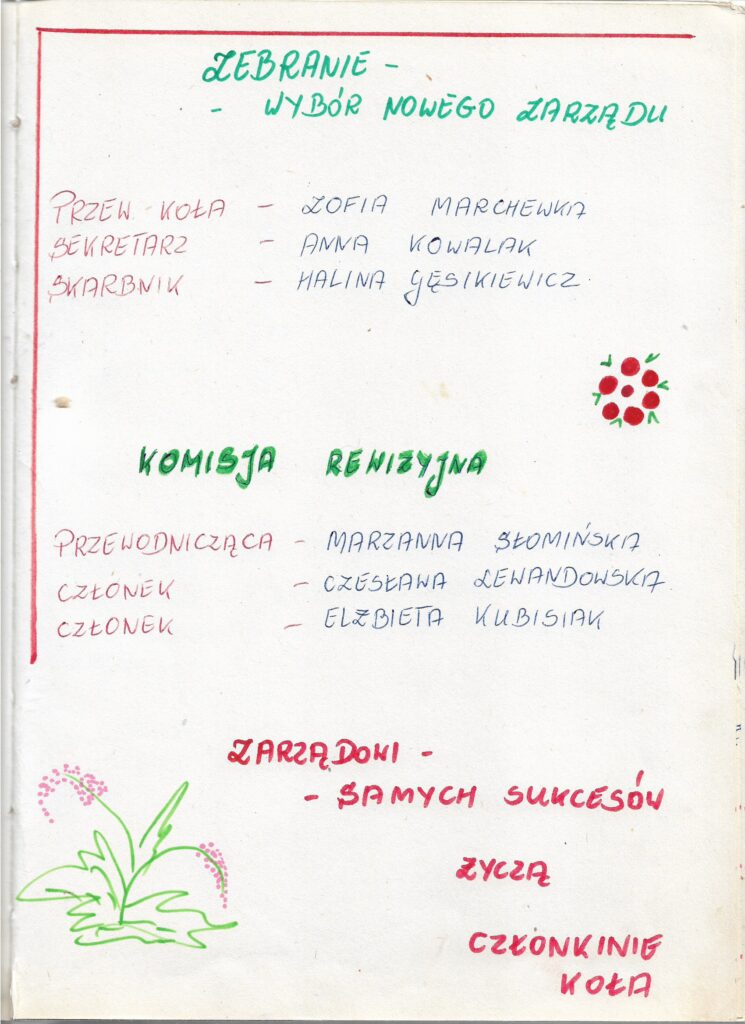 ZEBRANIE -
- WYBÓR NOWEGO ZARZĄDU
PRZEW. KOŁA - ZOFIA MARCHEWKA
SEKRETARZ - ANNA KOWALAK
SKARBNIK - HALINA GĘSIKIEWICZ
KOMISJA REWIZYJNA
PRZEWODNICZĄCA - MARZANNA SŁOMIŃSKA
CZŁONEK - CZESŁAWA LEWANDOWSKA
CZŁONEK - ELŻBIETA KUBISIAK
ZARZĄDOWI -
- SAMYCH SUKCESÓW
ŻYCZĄ
CZŁONKINIE
KOŁA